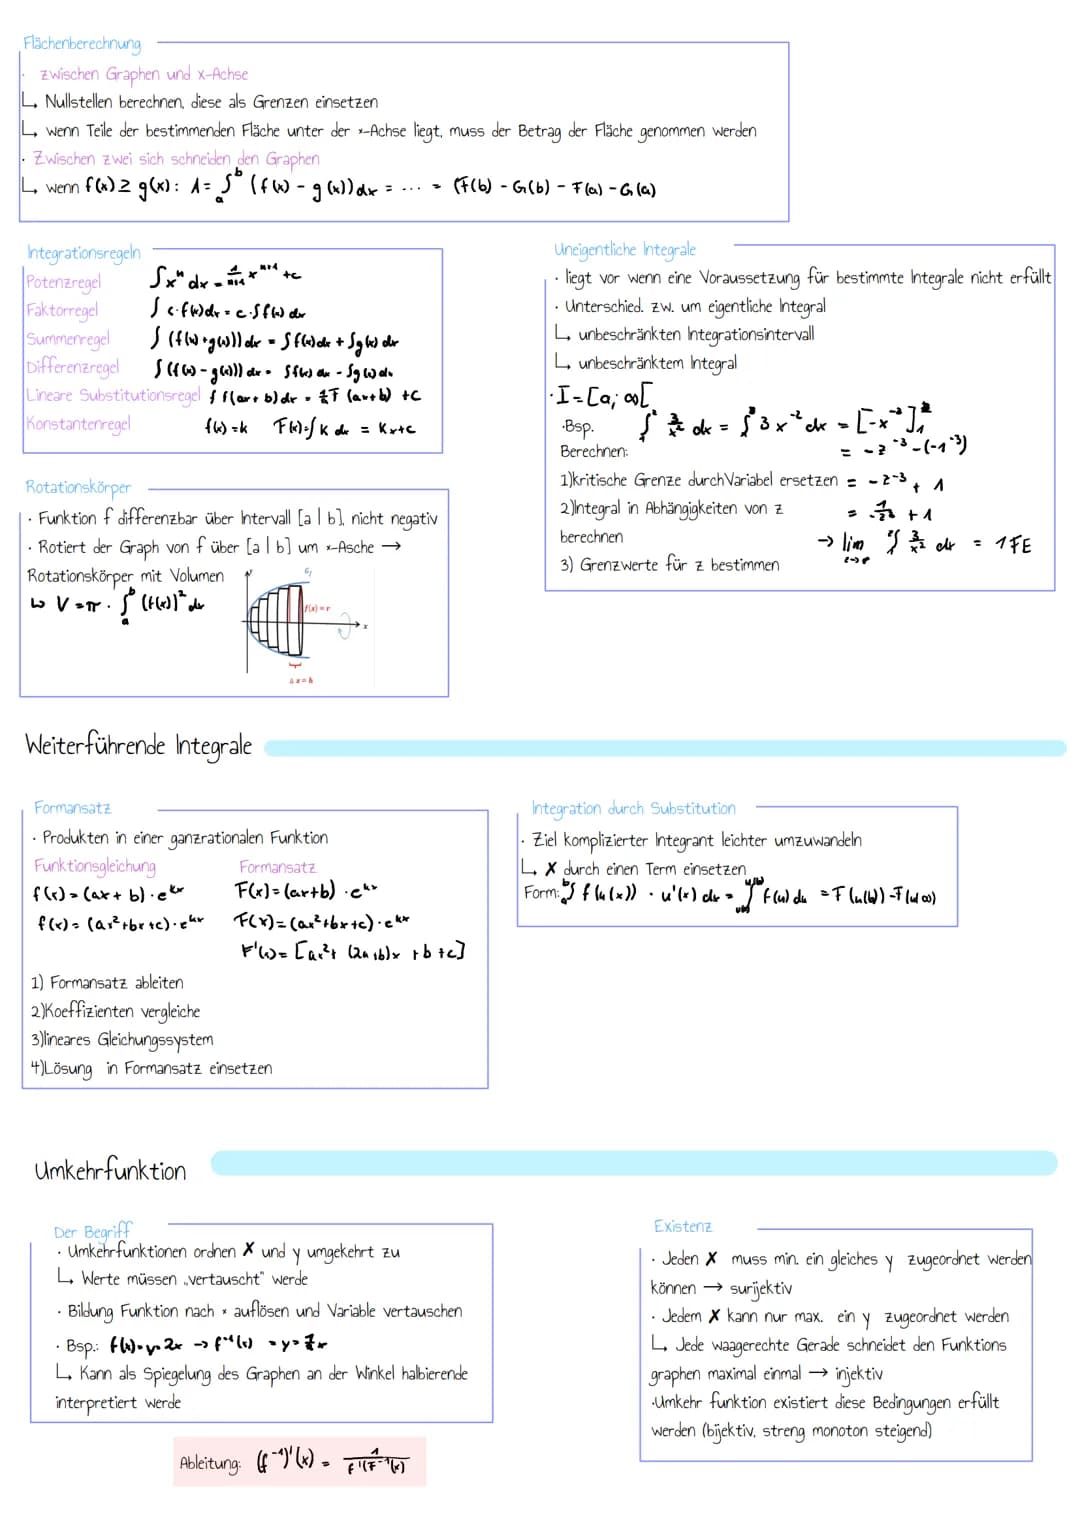 Flächenberechnung
· zwischen Graphen und x-Achse
↳ Nullstellen berechnen, diese als Grenzen einsetzen
↳ wenn Teile der bestimmenden Fläche unter der x-Achse liegt, muss der Betrag der Fläche genommen werden
· Zwischen zwei sich schneiden den Graphen
↳ wenn f(x) ≥ g(x): A = ∫_a^b (f(x) - g(x)) dx = ... = (F(b) - G(b) - F(a) - G(a)
Integrationsregeln
Potenzregel ∫x^n dx = 1/(n+1) x^(n+1) +c
Faktorregel ∫ c·f(x) dx = c·∫f(x) dx
Summenregel ∫ (f(x)+g(x)) dx = ∫f(x) dx + ∫g(x) dx
Differenzregel ∫ (f(x) - g(x)) dx = ∫f(x) dx - ∫g(x) dx
Lineare Substitutionsregel ∫ f(ax+b) dx = 1/a F (ax+b) +C
Konstantenregel f(x) = k F(x) = ∫ k dx = kx+c
Uneigentliche Integrale
· liegt vor wenn eine Voraussetzung für bestimmte Integrale nicht erfüllt
· Unterschied. zw. um eigentliche Integral
↳ unbeschränkten Integrationsintervall
↳ unbeschränktem Integral
· I = [a; ∞[
·Bsp. dx = 3x^-2 dx = [-x^-3]
Berechnen: = -z^-3 - (-1^-3)
1)kritische Grenze durch Variabel ersetzen = -z^-3 + 1
2)Integral in Abhängigkeiten von z + 1
berechnen → lim dx = 1FE
3) Grenzwerte für z bestimmen
Rotationskörper
· Funktion f differenzbar über Intervall [a | b], nicht negativ
· Rotiert der Graph von f über [a | b] um x-Asche →
Rotationskörper mit Volumen
↳ V = π · ∫_a^b (f(x))² dx
y
f(x) = r
x
Δx = h
Weiterführende Integrale
Formansatz
· Produkten in einer ganzrationalen Funktion
Funktionsgleichung Formansatz
f(x) = (ax + b) · e^kx F(x) = (ax+b) · e^kx
f(x) = (ax²+bx+c) · e^kx F(x) = (ax²+bx+c) · e^kx
F'(x) = [ax² + (2a+b)x + b + c]
1) Formansatz ableiten
2)Koeffizienten vergleiche
3)lineares Gleichungssystem
4)Lösung in Formansatz einsetzen
Integration durch Substitution
· Ziel komplizierter Integrant leichter umzuwandeln
↳ X durch einen Term einsetzen
Form: ∫ f(u(x)) · u'(x) dx = ∫ f(u) du = F(u(b)) - F(u(a))
Umkehrfunktion
Der Begriff
· Umkehrfunktionen ordnen X und y umgekehrt zu
↳ Werte müssen „vertauscht" werde
· Bildung Funktion nach x auflösen und Variable vertauschen
· Bsp.: f(x) = y = 2x → f^-1(x) = y = 1/2 x
↳ Kann als Spiegelung des Graphen an der Winkel halbierende
interpretiert werde
Ableitung: (f^-1)'(x) = 1/(f'(F^-1(x))
Existenz
· Jeden X muss min. ein gleiches y zugeordnet werden
können → surijektiv
· Jedem X kann nur max. ein y zugeordnet werden
↳ Jede waagerechte Gerade schneidet den Funktions
graphen maximal einmal → injektiv
·Umkehr funktion existiert diese Bedingungen erfüllt
werden (bijektiv, streng monoton steigend)